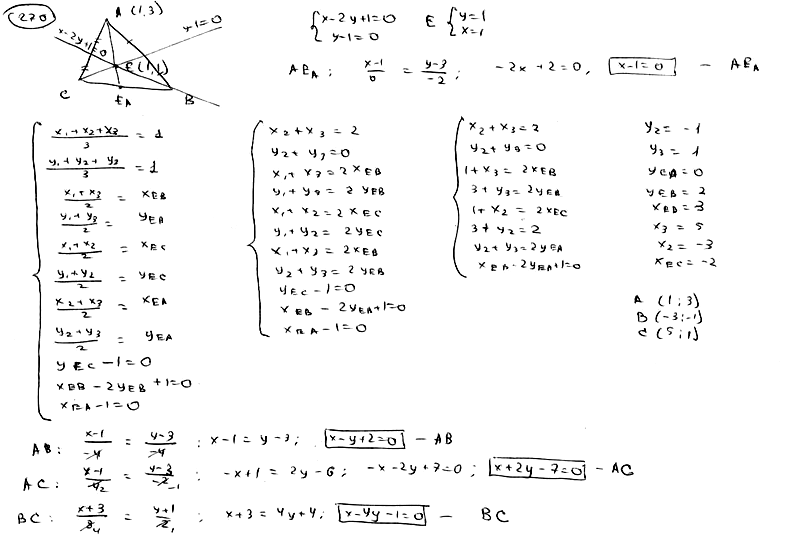 270
A (1,3)
y-1=0
x-2y+1=0
E(1,1)
C
E_A
B
{ x-2y+1=0
y-1=0
E { y=1
x=1
AE_A : (x-1)/0 = (y-3)/-2 ; -2x+2=0, x-1=0 - AE_A
(x₁+x₂+x₃)/3 = 1
(y₁+y₂+y₃)/3 = 1
(x₁+x₃)/2 = x_EB
(y₁+y₃)/2 = y_EA
(x₁+x₂)/2 = x_EC
(y₁+y₂)/2 = y_EC
(x₂+x₃)/2 = x_EA
(y₂+y₃)/2 = y_EA
y_EC-1=0
x_EB-2y_EB+1=0
x_EA-1=0
x₂+x₃=2
y₂+y₃=0
x₁+x₃=2x_EB
y₁+y₃=2y_EB
x₁+x₂=2x_EC
y₁+y₂=2y_EC
x₁+x₃=2x_EB
y₂+y₃=2y_EB
y_EC-1=0
x_EB-2y_EA+1=0
x_EA-1=0
x₂+x₃=2
y₂+y₃=0
1+x₃=2x_EB
3+y₃=2y_EB
1+x₂=2x_EC
3+y₂=2
y₂+y₃=2y_EA
x_EA-2y_EA+1=0
y₂=-1
y₃=1
y_EA=0
y_EB=2
x_EB=3
x₃=5
x₂=-3
x_EC=-2
A (1;3)
B (-3;-1)
C (5;1)
AB: (x-1)/-4 = (y-3)/-4 ; x-1=y-3; x-y+2=0 - AB
AC: (x-1)/4 2 = (y-3)/-2 -1 ; -x+1=2y-6; -x-2y+7=0; x+2y-7=0 - AC
BC: (x+3)/8 4 = (y+1)/2 1 ; x+3=4y+4; x-4y-1=0 - BC